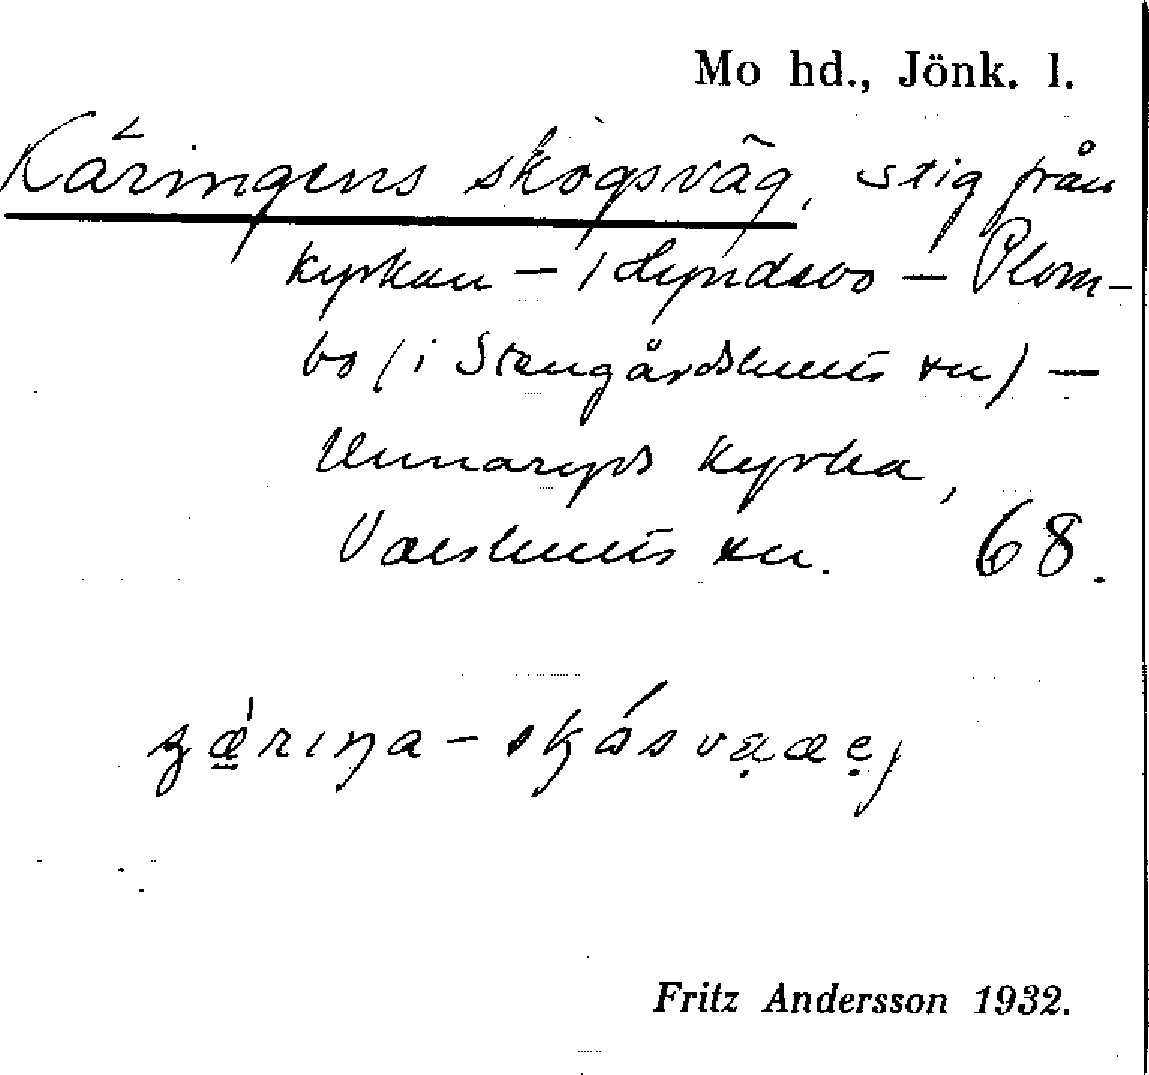 Mo hd., Jönk. l.
Käringens skogsväg, stig från
kyrkan – Hyndsbo – Plom-
bo (i Stengårdshults sn) –
Unnaryds kyrka,
Valshults sn. 68.
Fritz Andersson 1932.